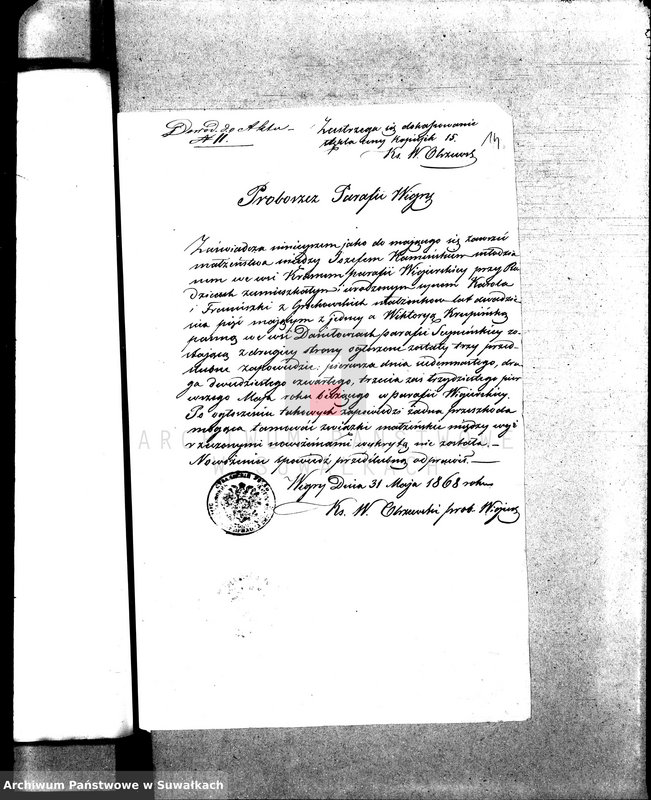 Dowód do Aktu
№ 11.
Zastrzega się dokasowanie
stępla ceny kopiejek 15.
Ks. W. Obrzewski
14.
Proboszcz Parafii Wigry
Zaświadcza niniejszym jako do mającego się zawrzeć
małżeństwa między Józefem Kamińskim młodzia
nem we wsi Krusznik parafii Wigierskiej przy Ro
dzicach zamieszkałym i urodzonym synem Karola
i Franciszki z Grochowskich małżonków lat dwadzie
ścia pięć mającym z jednej a Wiktoryą Krupińską
panną we wsi Daniłowcach parafii Sejneńskiej zo
stającą z drugiej strony ogłoszone zostały trzy przed
ślubne zapowiedzie: pierwsza dnia siedemnastego, dru
ga dwudziestego czwartego, trzecia zaś trzydziestego pier
wszego Maja roku bieżącego w parafii Wigierskiej.
Po ogłoszeniu takowych zapowiedzi żadna przeszkoda
mogąca tamować związki małżeńskie między wyż
rzeczonymi nowożeńcami wykrytą nie została.
Nowożeniec spowiedź przedślubną odprawił.
Wigry Dnia 31 Maja 1868 roku
Ks. W. Obrzewski prob. Wigiers
ARCHIWUM PAŃSTWOWE
W SUWAŁKACH
Archiwum Państwowe w Suwałkach